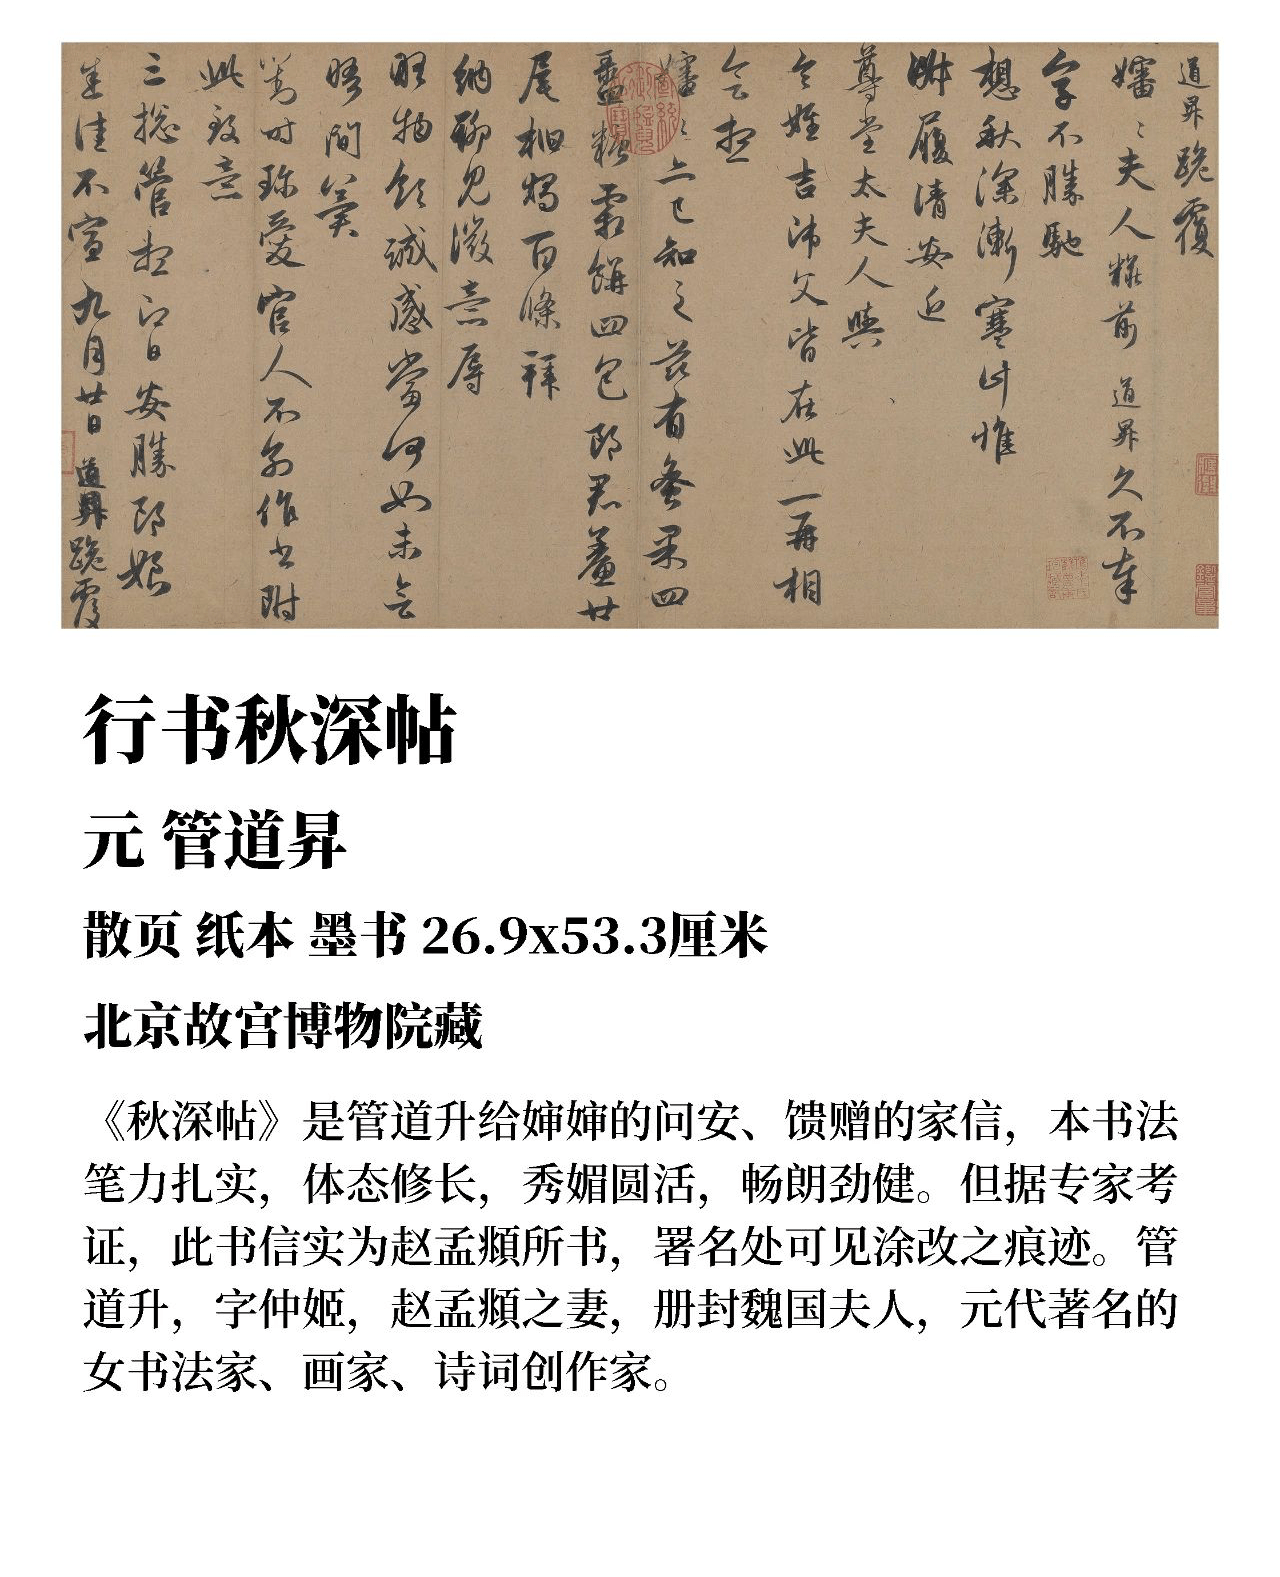 道昇跪覆
嬸嬸夫人糚前道昇久不奉
字不勝馳
想秋深漸寒計惟
淑履清安近
尊堂太夫人與
令姪吉師父皆在此一再相
會想
嬸嬸亦已知之茲有蜜果四
盝糖霜餅四包郎君鯗廿
尾桕燭百條拜
納聊見微意辱
略物領誠感當何如未會
晤間冀
對時珍愛官人不別作書附
此致意
三總管想即日安勝郎娘
悉佳不宣九月廿日道昇跪覆
行书秋深帖
元 管道昇
散页 纸本 墨书 26.9x53.3厘米
北京故宫博物院藏
《秋深帖》是管道升给婶婶的问安、馈赠的家信，本书法
笔力扎实，体态修长，秀媚圆活，畅朗劲健。但据专家考
证，此书信实为赵孟頫所书，署名处可见涂改之痕迹。管
道升，字仲姬，赵孟頫之妻，册封魏国夫人，元代著名的
女书法家、画家、诗词创作家。